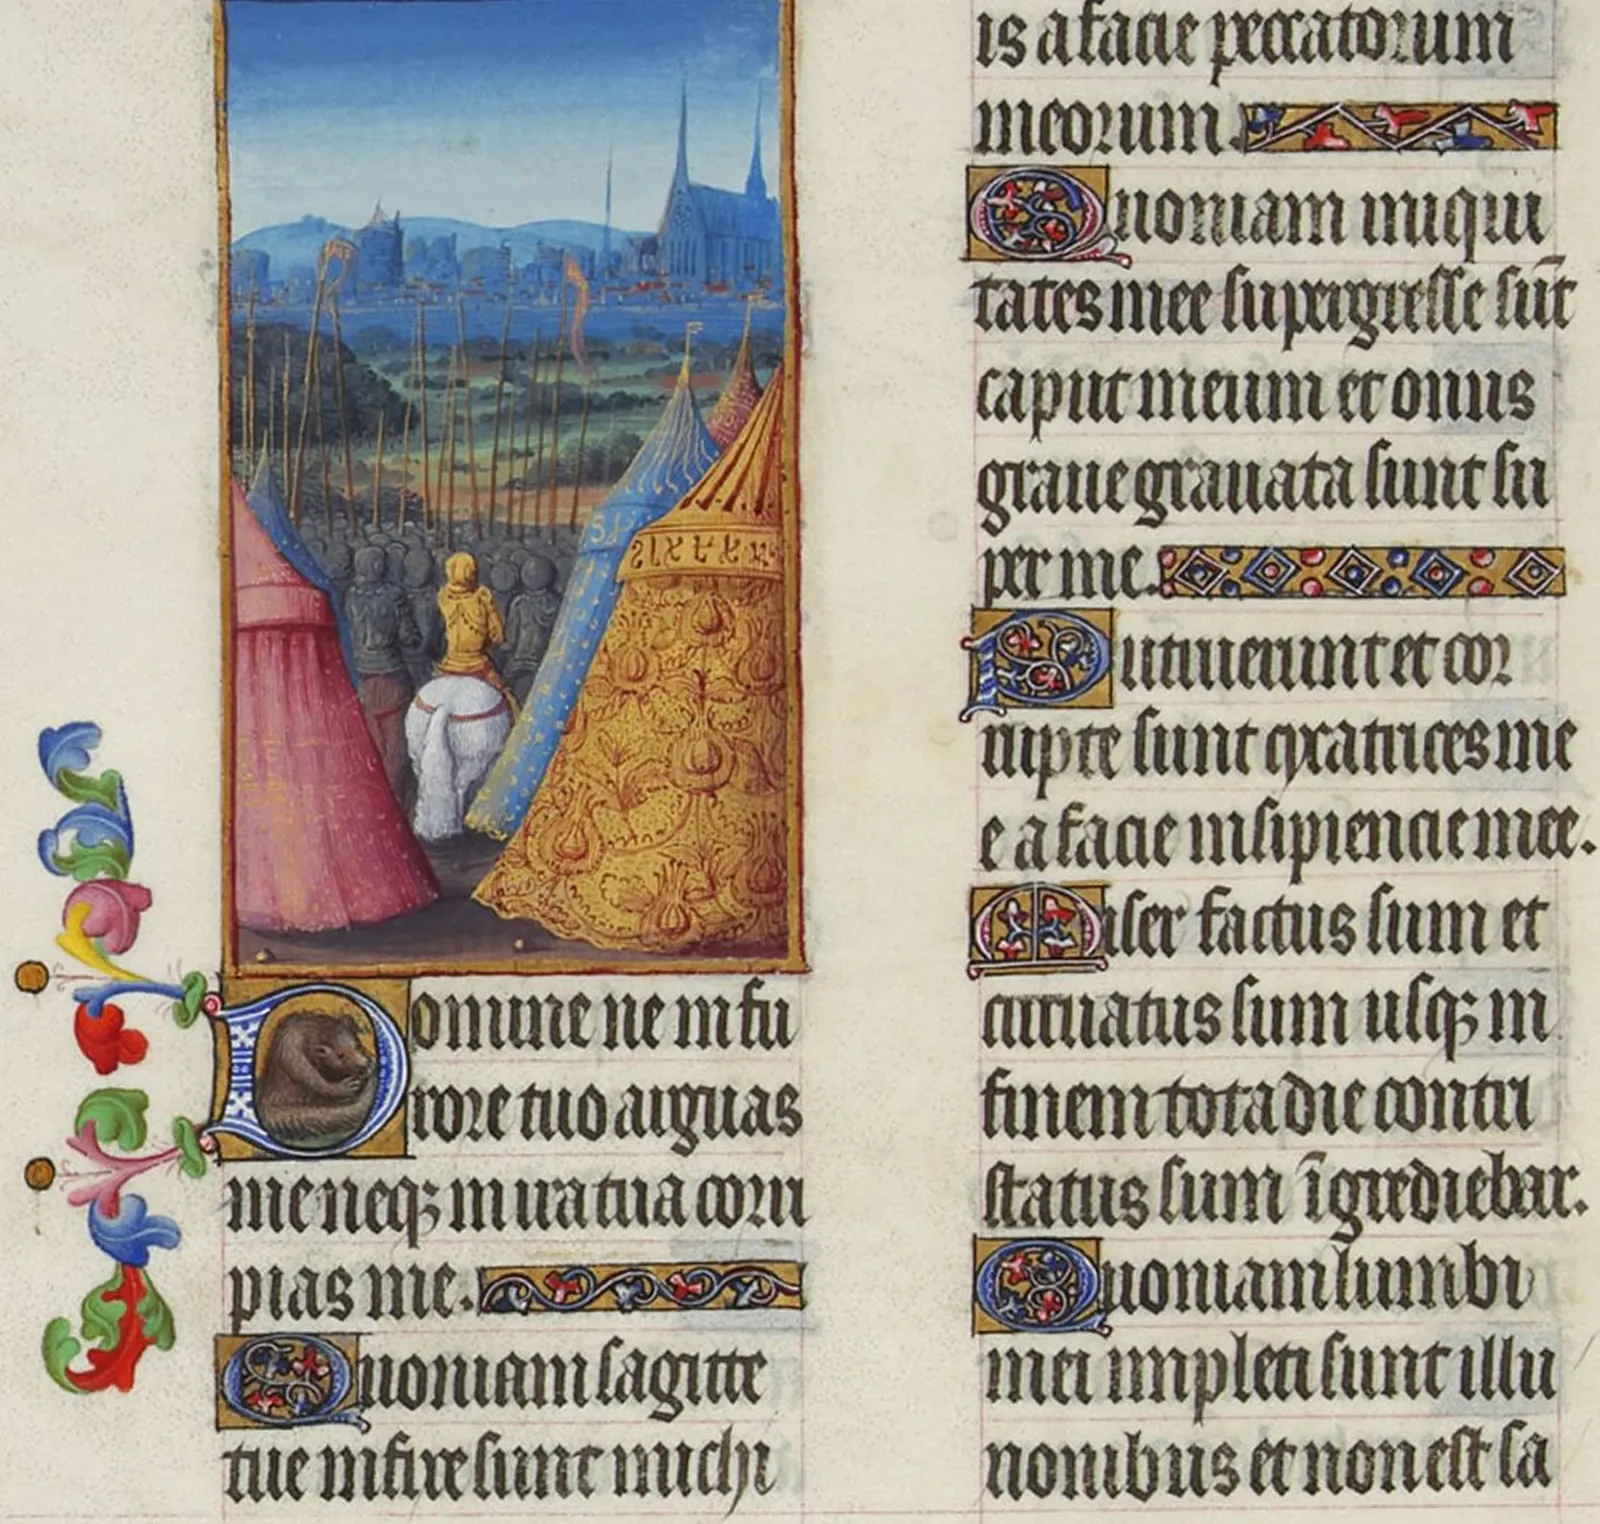 Domine ne in fu
rore tuo arguas
me neqꝫ in ira tua corri
pias me.
Quoniam sagitte
tue infixe sunt michi
is a facie peccatorum
meorum.
Quoniam iniqui
tates mee supergresse sūt
caput meum et onus
graue grauata sunt su
per me.
Putruerunt et cor
rupte sunt cicatrices me
e a facie insipiencie mee.
Miser factus sum et
curuatus sum usqꝫ in
finem tota die contri
status sum īgrediebar.
Quoniam lumbi
mei impleti sunt illu
sionibus et non est sa